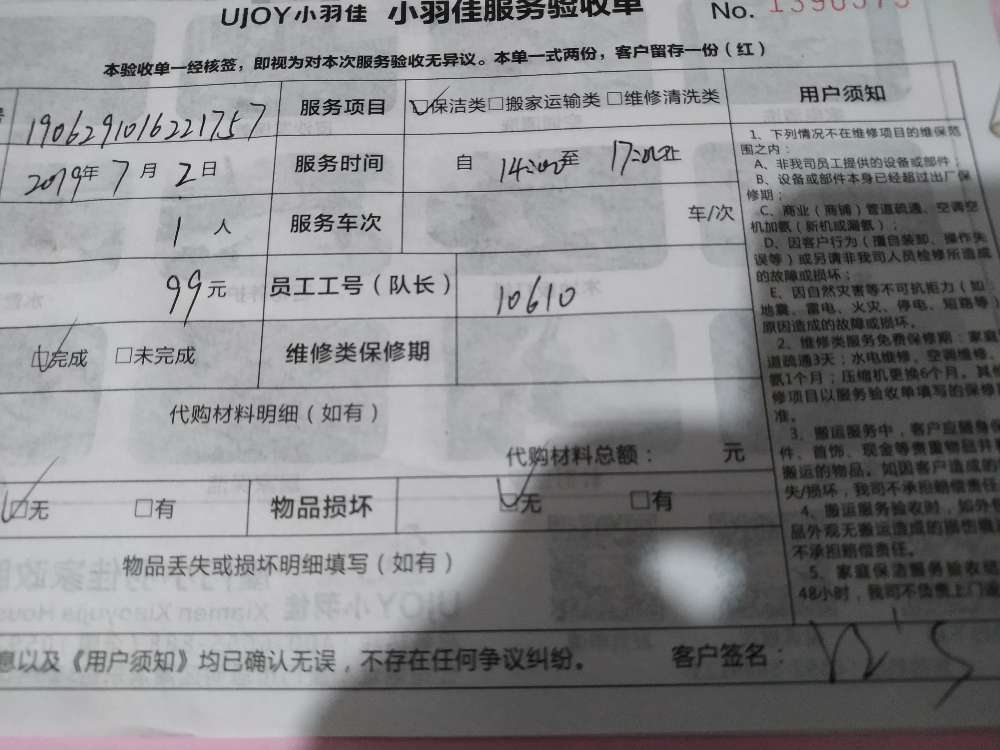 UJOY小羽佳 小羽佳服务验收单 No. 1390573
本验收单一经核签，即视为对本次服务验收无异议。本单一式两份，客户留存一份（红）
1906291016221757 服务项目 ☑保洁类□搬家运输类□维修清洗类
2019年7月2日 服务时间 自14:00至17:00止
1人 服务车次 车/次
99元 员工工号（队长） 10610
☑完成 □未完成 维修类保修期
代购材料明细（如有）
代购材料总额： 元
☑无 □有 物品损坏 ☑无 □有
物品丢失或损坏明细填写（如有）
息以及《用户须知》均已确认无误，不存在任何争议纠纷。 客户签名：
用户须知
1、下列情况不在维修项目的维保范
围之内：
A、非我司员工提供的设备或部件；
B、设备或部件本身已经超过出厂保
修期；
C、商业（商铺）管道疏通、空调空
机加氨（新机或漏氨）；
D、因客户行为（擅自装卸、操作失
误等）或另请非我司人员检修所造成
的故障或损坏；
E、因自然灾害等不可抗拒力（如：
地震、雷电、火灾、停电、短路等）
原因造成的故障或损坏。
2、维修类服务免费保修期：家庭
道疏通3天；水电维修、空调维修、
氨1个月；压缩机更换6个月。其他
修项目以服务验收单填写的保修
准。
3、搬运服务中，客户应随身保
件、首饰、现金等贵重物品并
搬运的物品。如因客户造成的
失/损坏，我司不承担赔偿责任
4、搬运服务验收时，如外包
品外观无搬运造成的损伤痕
不承担赔偿责任。
5、家庭保洁服务验收结
48小时，我司不负责上门返